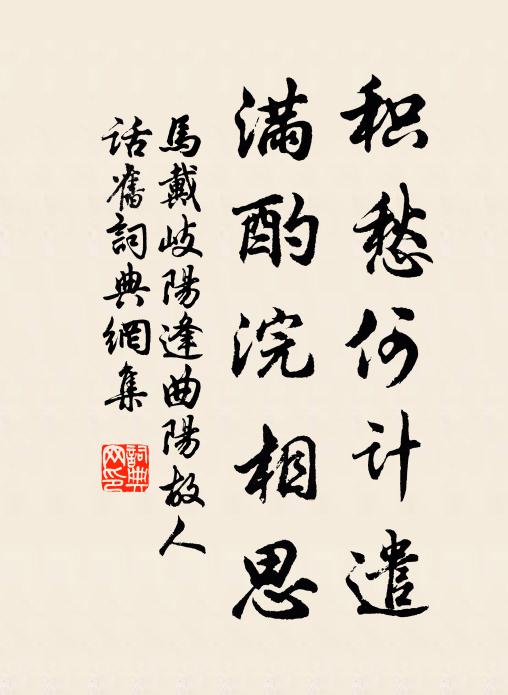 积愁何计遣
满酌浣相思
馬戴岐陽逢曲陽故人
話舊詞典網集
詞典
网印